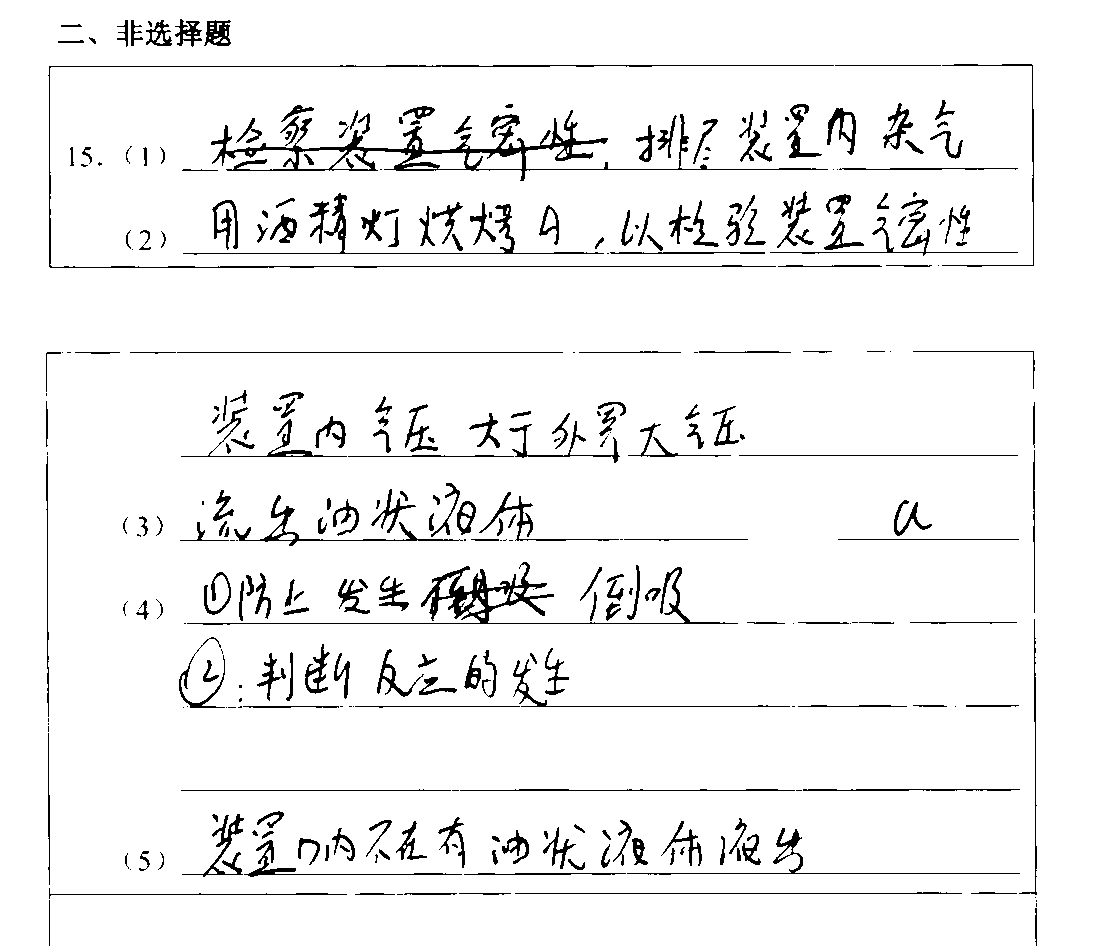 二、非选择题
15.（1）检察装置气密性，排尽装置内杂气
（2）用酒精灯烘烤A，以检验装置气密性
装置内气压大于外界大气压
（3）流出油状液体 a
（4）①防止发生倒吸 倒吸
②：判断反应的发生
（5）装置D内不在有油状液体液出